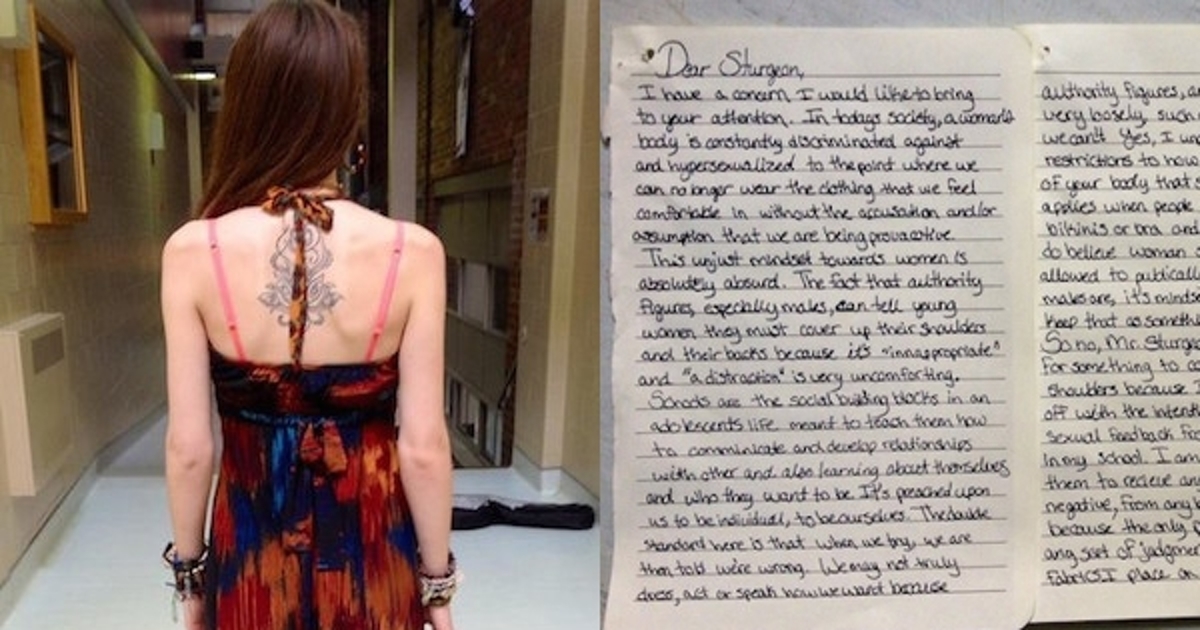 Dear Sturgeon,
I have a concern I would like to bring
to your attention. In todays society, a woman's
body is constantly discriminated against
and hypersexualized to the point where we
can no longer wear the clothing that we feel
comfortable in without the accusation and/or
assumption that we are being provacative.
This unjust mindset towards women is
absolutely absurd. The fact that authority
figures, especially males, can tell young
women they must cover up their shoulders
and their backs because it's "innapropriate"
and "a distraction" is very uncomforting.
Schools are the social building blocks in an
adolescents life meant to teach them how
to communicate and develop relationships
with other and also learning about themselves
and who they want to be. It's preached upon
us to be individual, to be ourselves. The double
standard here is that when we try, we are
then told we're wrong. We may not truly
dress, act or speak how we want because
authority figures, an
very loosely, such
we can't. Yes, I un
restrictions to how
of your body that s
applies when people
bikinis or bra and
do believe woman
allowed to publically
males are, it's minds
keep that as someth
So no, Mr. Sturgeo
for something to co
shoulders because I
off with the intenti
sexual feedback fro
in my school. I am
them to recieve an
negative, from any
because the only
ang sort of judgmen
fabrics I place on